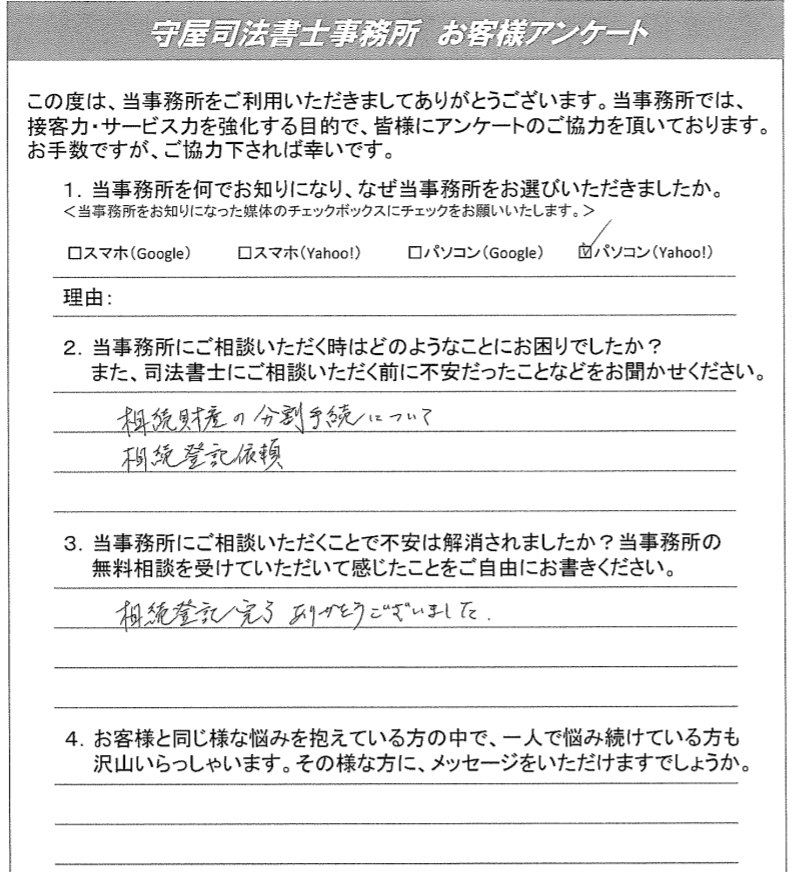 守屋司法書士事務所 お客様アンケート
この度は、当事務所をご利用いただきましてありがとうございます。当事務所では、
接客力・サービス力を強化する目的で、皆様にアンケートのご協力を頂いております。
お手数ですが、ご協力下されば幸いです。
1. 当事務所を何でお知りになり、なぜ当事務所をお選びいただきましたか。
＜当事務所をお知りになった媒体のチェックボックスにチェックをお願いいたします。＞
□スマホ(Google) □スマホ(Yahoo!) □パソコン(Google) ☑パソコン(Yahoo!)
理由:
2. 当事務所にご相談いただく時はどのようなことにお困りでしたか？
また、司法書士にご相談いただく前に不安だったことなどをお聞かせください。
相続財産の分割手続について
相続登記依頼
3. 当事務所にご相談いただくことで不安は解消されましたか？当事務所の
無料相談を受けていただいて感じたことをご自由にお書きください。
相続登記完了 ありがとうございました.
4. お客様と同じ様な悩みを抱えている方の中で、一人で悩み続けている方も
沢山いらっしゃいます。その様な方に、メッセージをいただけますでしょうか。